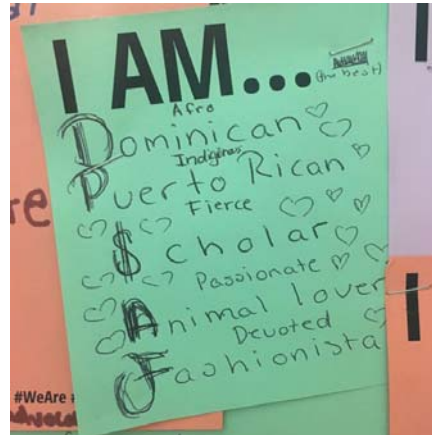 I AM...
(the best)
Afro
Dominican
Indigenas
Puerto Rican
Fierce
$cholar
Passionate
Animal lover
Devoted
Fashionista
#WeAre